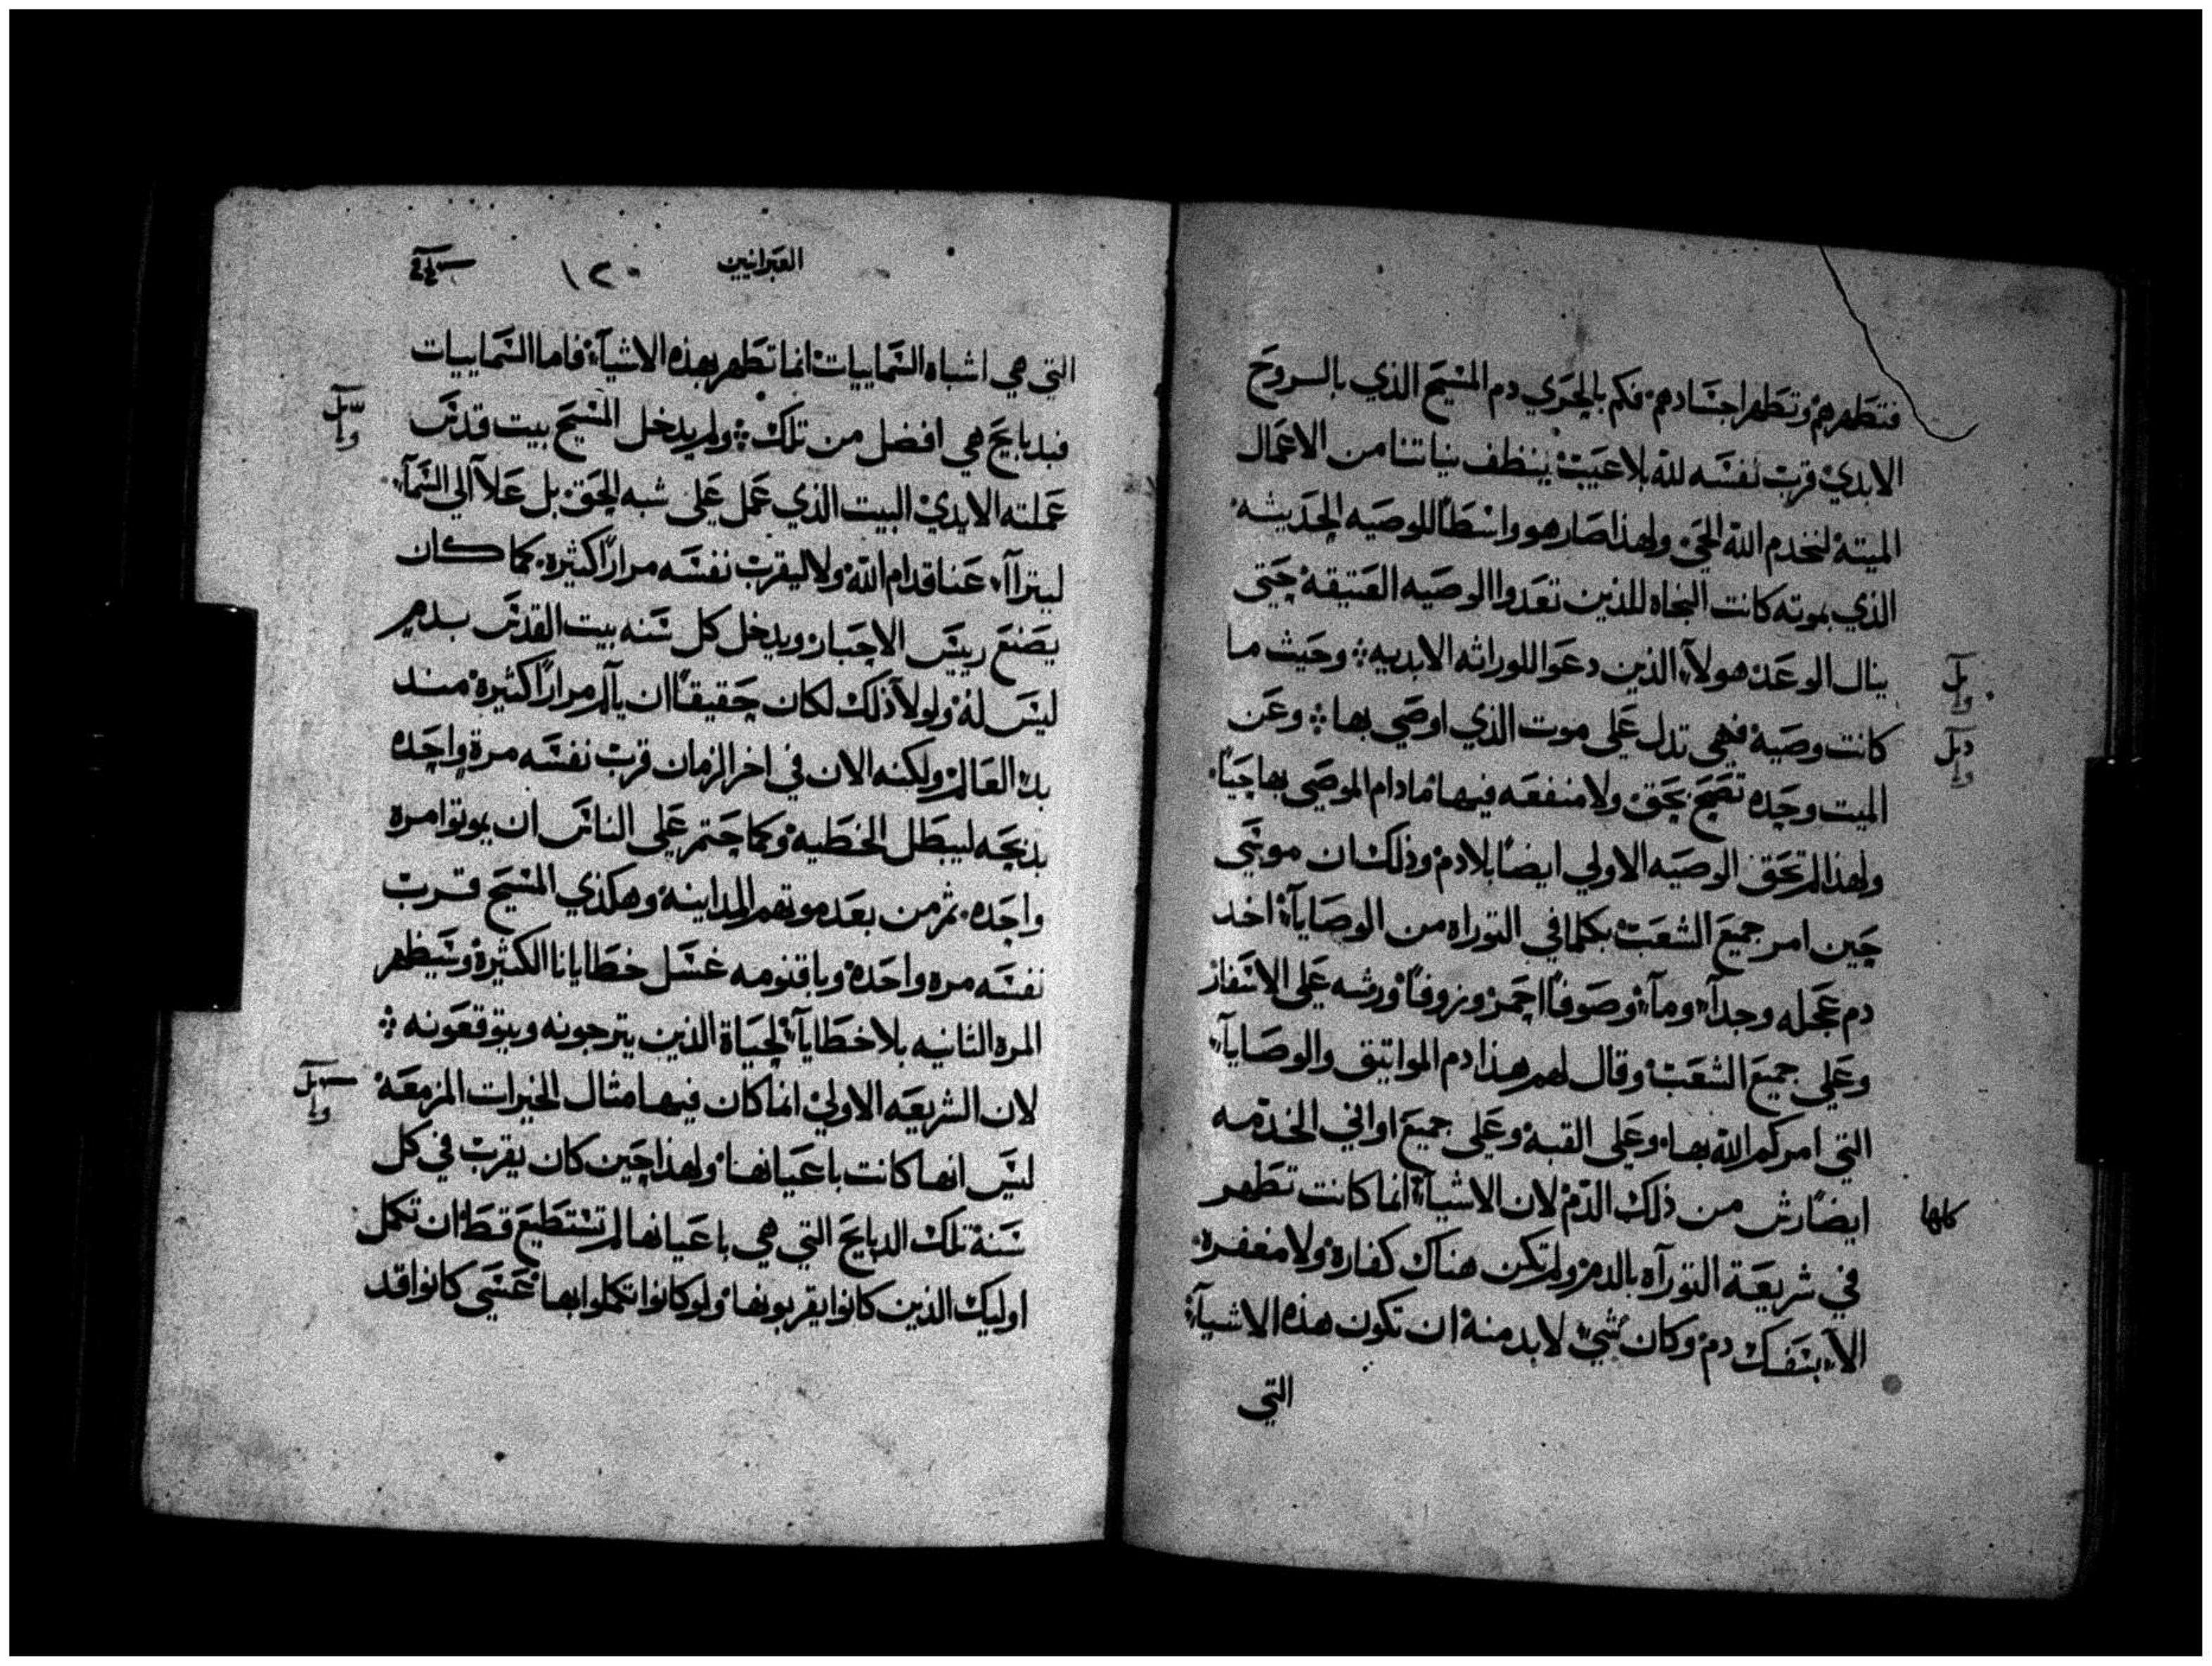 فتطهرهم وتطهر اجسادهم فكم بالحري دم المسيح الذي بالروح
الابدي قرب نفسه لله بلا عيب ينظف نياتنا من الاعمال
الميتة لنخدم الله الحي ولهذا صار هو واسطا للوصيه الحديثه
الذي بموته كانت النجاه للذين تعدوا الوصيه العتيقة حتي
ينال الوعد هولآء الذين دعوا للوراثه الابديه وحيث ما
كانت وصية فهي تدل علي موت الذي اوصي بها وعن
الميت وحده تصح بحق ولا منفعه فيها ما دام الموصي بها حيا
ولهذا لم تحق الوصيه الاولي ايضا بلا دم وذلك ان موسي
حين امر جميع الشعب بكلما في التوراه من الوصايآء اخد
دم عجله وجدآء ومآء وصوفا احمر وزوفا ورشه علي الاسفار
وعلي جميع الشعب وقال لهم هذا دم المواتيق والوصايآء
التي امركم الله بها وعلي القبة وعلي جميع اواني الخدمه
ايضا رش من ذلك الدم لان الاشيآء انما كانت تطهر
كلها
في شريعة التورآه بالدم ولم تكن هناك كفارة ولا مغفرة
الآء بسفك دم وكان شيء لابد منة ان تكون هذه الاشيآء
التي
العبرانيين
١٢٠
التي هي اشباه السماييات انما تطهر بهذه الاشيآء فاما السماييات
فبدبايح هي افضل من تلك ولم يدخل المسيح بيت قدس
عملته الايدي البيت الذي عمل علي شبه الحق بل علآ الي السمآء
ليترآآء عنا قدام الله ولا ليقرب نفسه مرارا كثيرة كما كان
يصنع رييس الاحبار ويدخل كل سنه بيت القدس بدم
ليس له ولولا ذلك لكان حقيقا ان يآلم مرارا كثيرة مند
بدء العالم ولكنه الان في اخر الزمان قرب نفسه مرة واحده
بذبيحه ليبطل الخطيه وكما حتم علي الناس ان يموتوا مره
واحده ثم من بعد موتهم المداينة وهكذي المسيح قرب
نفسه مره واحدة وباقنومه غسل خطايانا الكثيرة وسيظهر
المره الثانيه بلا خطايآء لحياة الذين يترجونه ويتوقعونه
لان الشريعه الاولي انما كان فيها مثال الخيرات المزمعة
ليس انها كانت باعيانها ولهذا حين كان يقرب في كل
سنة تلك الدبايح التي هي باعيانها لم تستطيع قط ان تكمل
اوليك الذين كانوا يقربونها ولو كانوا تكملوا بها عسي كانوا قد